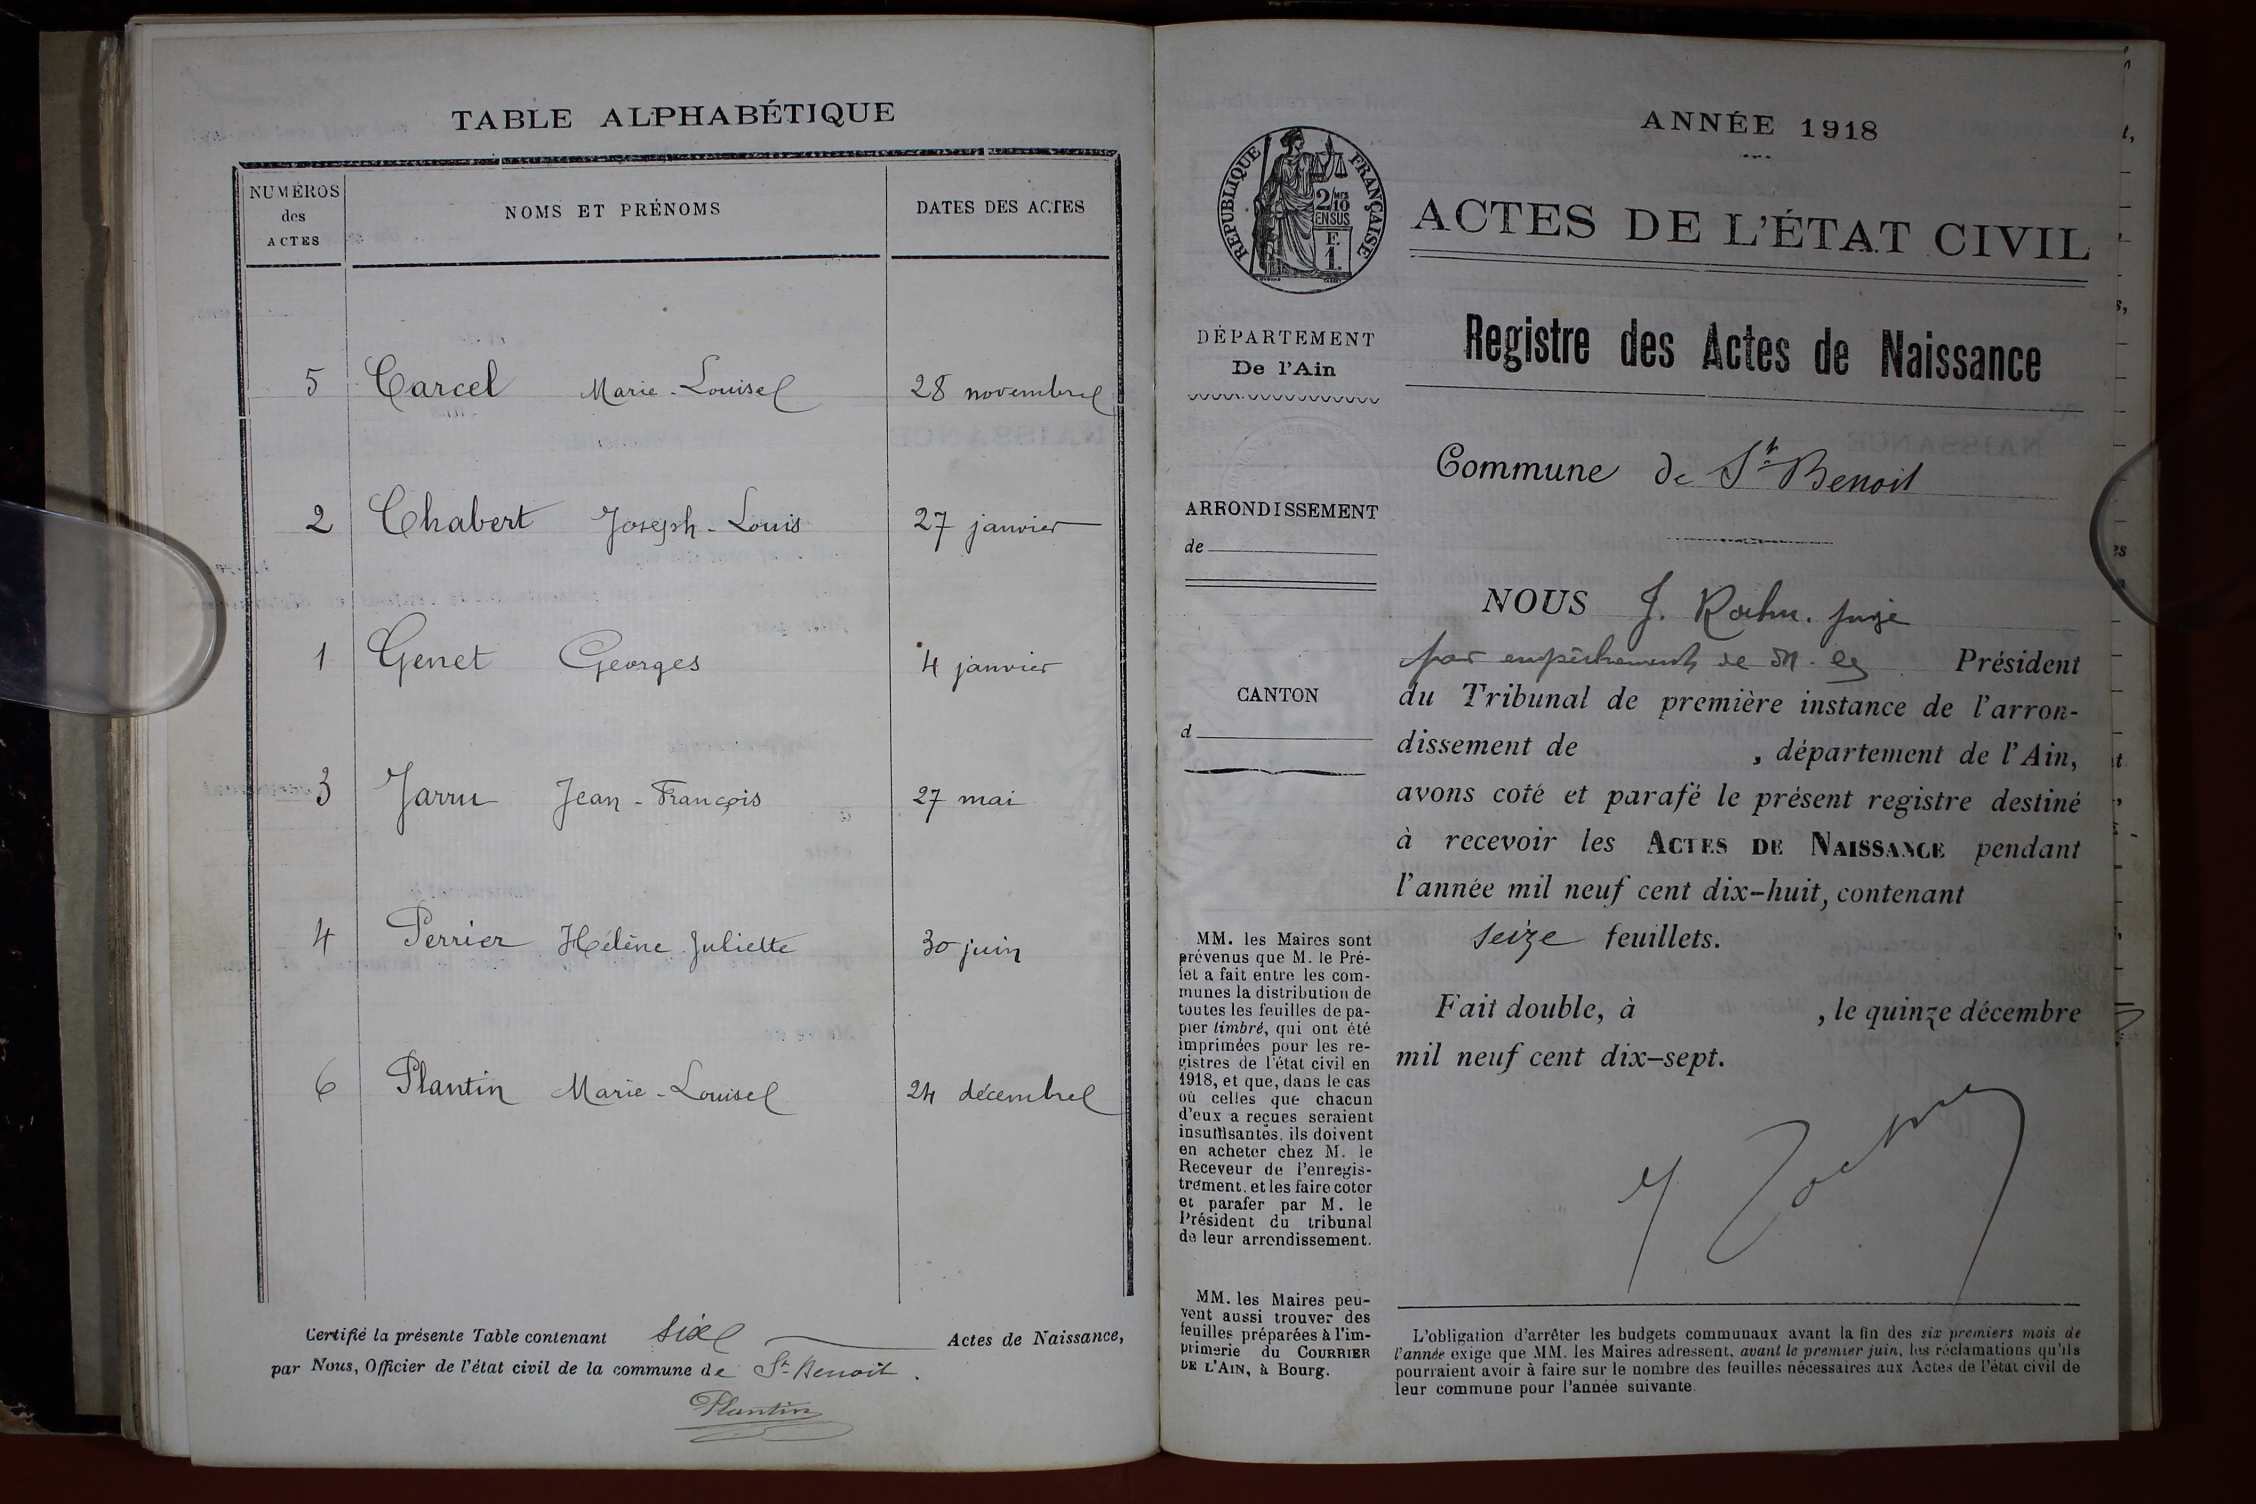 TABLE ALPHABÉTIQUE
NUMÉROS
des
ACTES
NOMS ET PRÉNOMS
DATES DES ACTES
5 Carcel Marie-Louise 28 novembre
2 Chabert Joseph-Louis 27 janvier
1 Genet Georges 4 janvier
3 Jarru Jean-François 27 mai
4 Perrier Hélène Juliette 30 juin
6 Plantin Marie-Louise 24 décembre
Certifié la présente Table contenant six Actes de Naissance,
par Nous, Officier de l'état civil de la commune de St Benoit.
Plantin
RÉPUBLIQUE FRANÇAISE
2/10
EN SUS
F.
1.
DÉPARTEMENT
De l'Ain
ARRONDISSEMENT
de
CANTON
d
MM. les Maires sont
prévenus que M. le Pré-
fet a fait entre les com-
munes la distribution de
toutes les feuilles de pa-
pier timbré, qui ont été
imprimées pour les re-
gistres de l'état civil en
1918, et que, dans le cas
où celles que chacun
d'eux a reçues seraient
insuffisantes, ils doivent
en acheter chez M. le
Receveur de l'enregis-
trement, et les faire coter
et parafer par M. le
Président du tribunal
de leur arrondissement.
MM. les Maires peu-
vent aussi trouver des
feuilles préparées à l'im-
primerie du COURRIER
DE L'AIN, à Bourg.
ANNÉE 1918
ACTES DE L'ÉTAT CIVIL
Registre des Actes de Naissance
Commune de St Benoit
NOUS J. juge
par empêchement de M. le Président
du Tribunal de première instance de l'arron-
dissement de , département de l'Ain,
avons coté et parafé le présent registre destiné
à recevoir les ACTES DE NAISSANCE pendant
l'année mil neuf cent dix-huit, contenant
seize feuillets.
Fait double, à , le quinze décembre
mil neuf cent dix-sept.
L'obligation d'arrêter les budgets communaux avant la fin des six premiers mois de
l'année exige que MM. les Maires adressent, avant le premier juin, les réclamations qu'ils
pourraient avoir à faire sur le nombre des feuilles nécessaires aux Actes de l'état civil de
leur commune pour l'année suivante.